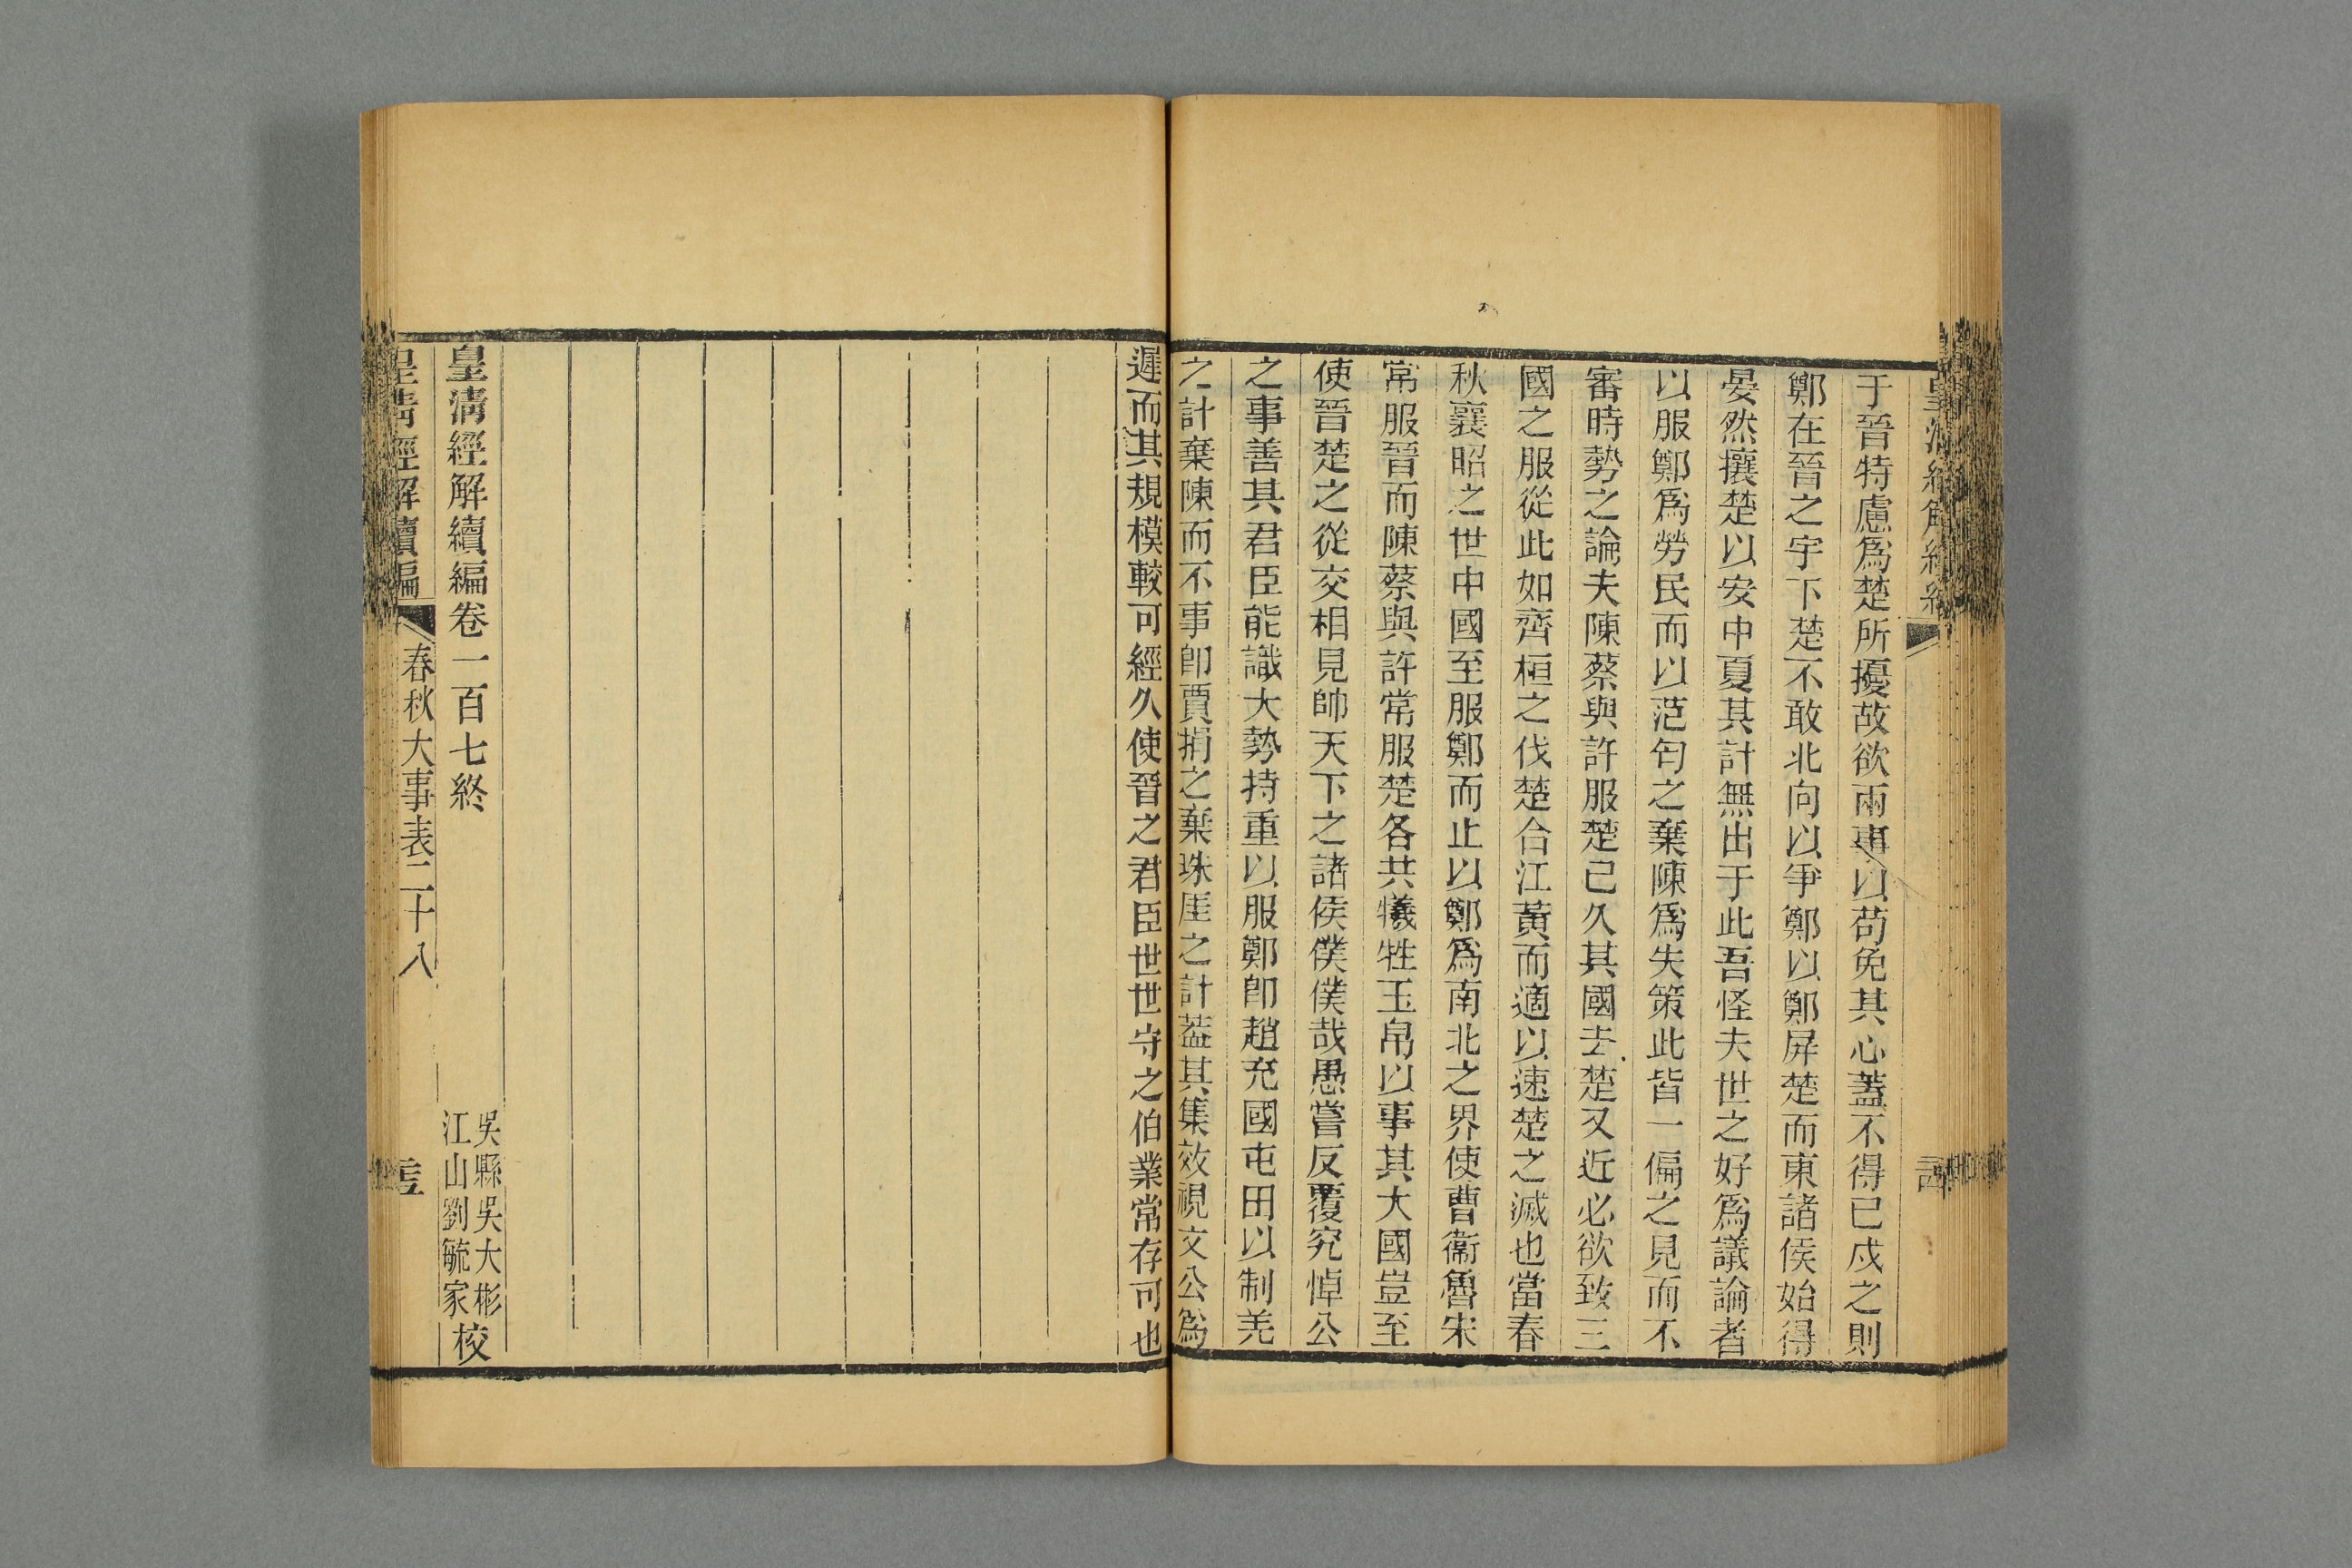 于晉特慮爲楚所擾故欲兩事以苟免其心蓋不得已戍之則
鄭在晉之宇下楚不敢北向以爭鄭以鄭屏楚而東諸侯始得
晏然攘楚以安中夏其計無出于此吾怪夫世之好爲議論者
以服鄭爲勞民而以范匄之棄陳爲失策此皆一偏之見而不
審時勢之論夫陳蔡與許服楚已久其國去楚又近必欲致三
國之服從此如齊桓之伐楚合江黃而適以速楚之滅也當春
秋襄昭之世中國至服鄭而止以鄭爲南北之界使曹衞魯宋
常服晉而陳蔡與許常服楚各共犧牲玉帛以事其大國豈至
使晉楚之從交相見帥天下之諸侯僕僕哉愚嘗反覆究悼公
之事善其君臣能識大勢持重以服鄭卽趙充國屯田以制羌
之計棄陳而不事卽賈捐之棄珠厓之計葢其集效視文公爲
遲而其規模較可經久使晉之君臣世世守之伯業常存可也
皇清經解續編卷一百七終
吳縣吳大彬
江山劉毓家
校
皇清經解續編
春秋大事表二十八